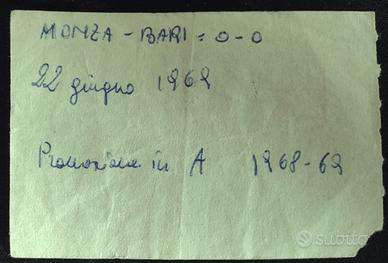 MONZA - BARI = 0 - 0
22 giugno 1969
Promozione in A 1968-69
subito